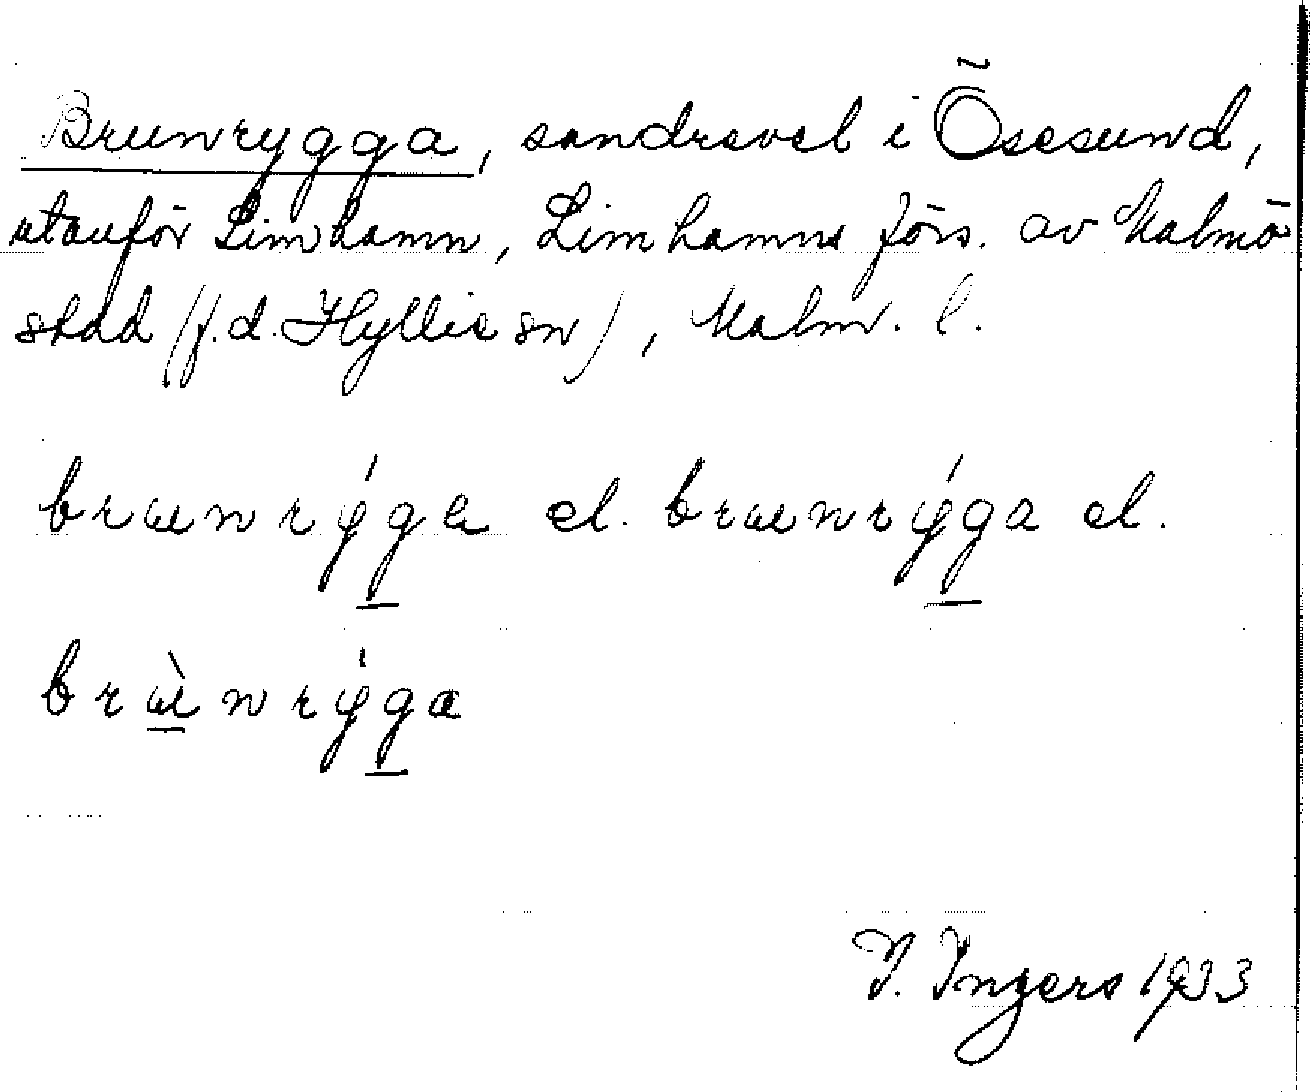 Brunrygga, sandrevel i Öresund,
utanför Limhamn, Limhamns förs. av Malmö
stad (f.d. Hyllie sn), Malm. l.
brɯnrýga el. brɯnrýga el.
brɯ̀nrýga
I. Ingers 1933